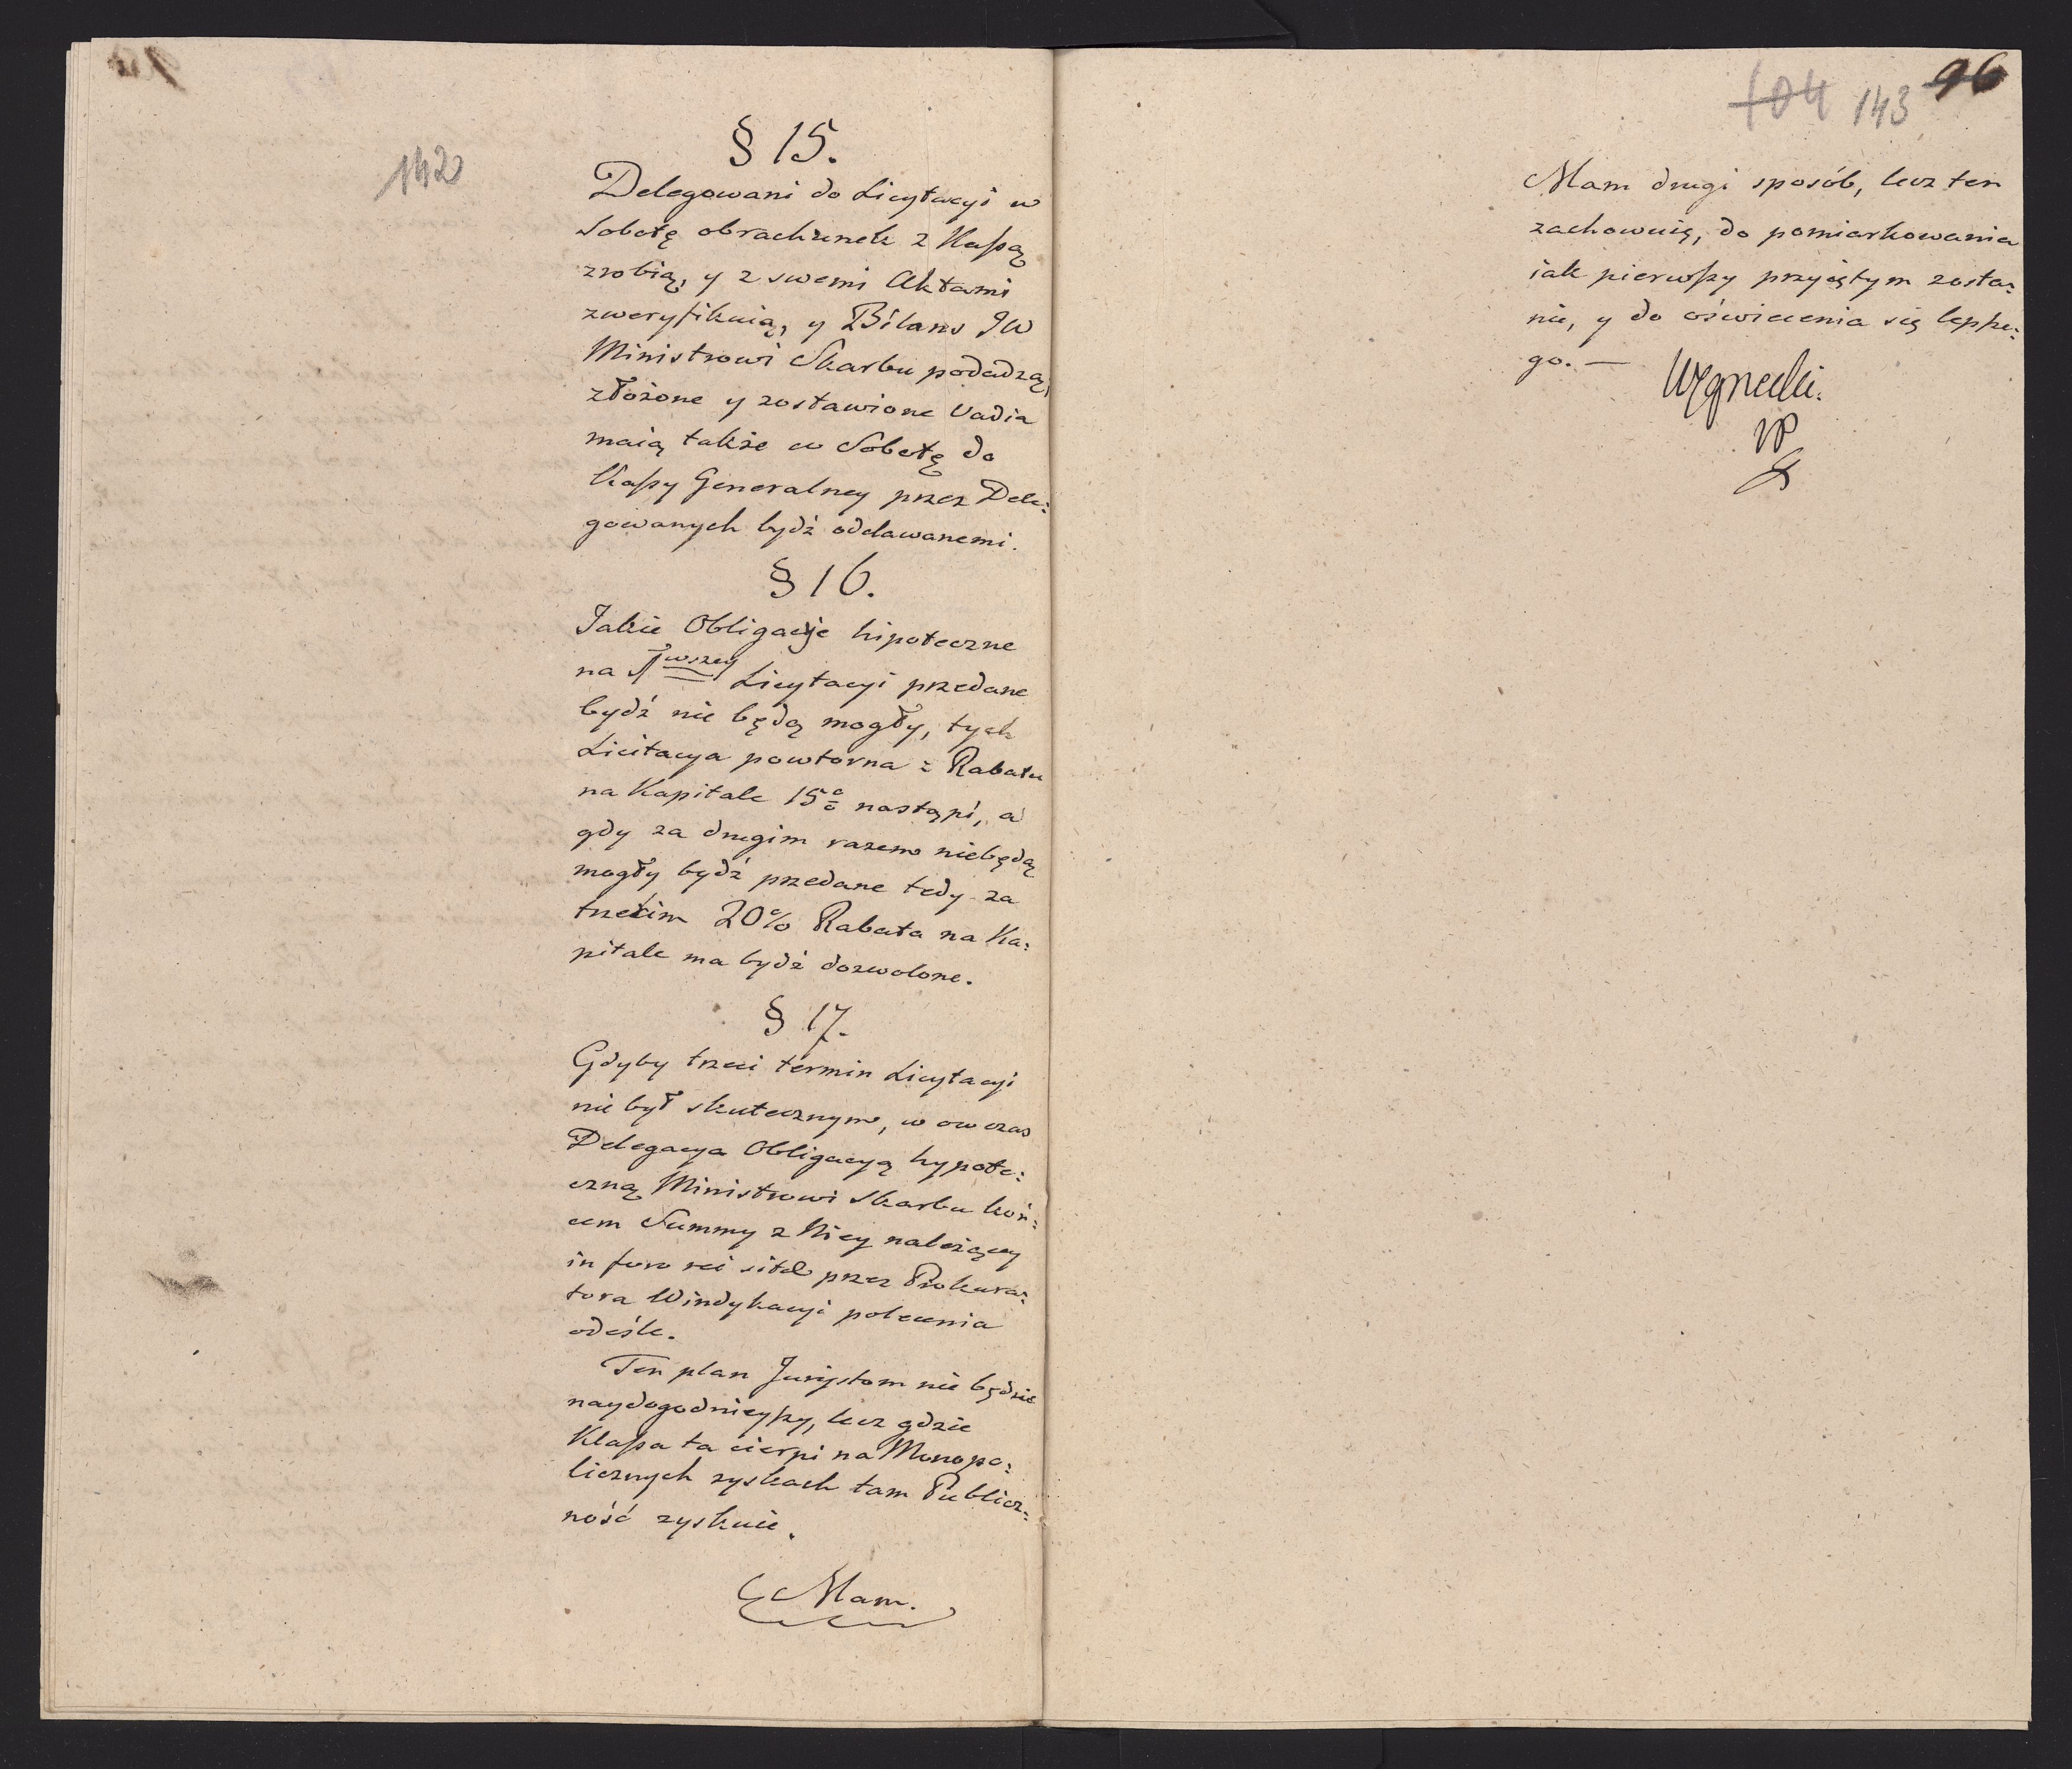 142
§ 15.
Delegowani do Licytacyi w
Sobotę obrachunek z Kaſsą
zrobią, y z swemi Aktami
zweryfikuią, y Bilans JW
Ministrowi Skarbu podadzą,
złożone y zostawione Vadia
maią także w Sobotę do
Kaſsy Generalney przez Dele:
gowanych bydź oddawanemi.
§ 16.
Jakie Obligacje hipoteczne
na 1wszey Licytacyi przedane
bydź nie będą mogły, tych
Licitacya powtorna z Rabatu
na Kapitale 15% nastąpi, a
gdy za drugim razem niebędą
mogły bydź przedane tedy za
trzecim 20% Rabata na Ka:
pitale ma bydź dozwolone.
§ 17.
Gdyby trzeci termin Licytacyi
nie był skutecznym, w owczas
Delegacya Obligacyą hypote:
czną Ministrowi Skarbu koń:
cem Summy z Niey należącey
in foro rei sitae przez Prokura:
tora Windykacyi polecenia
odeśle.
Ten plan Jurystom nie będzie
naydogodnieyſzy, lecz gdzie
Klaſsa ta cierpi na Monopo:
licznych zyskach tam Publicz:
ność zyskuie.
Mam.
104 143 96
Mam drugi sposób, lecz ten
zachowuię, do pomiarkowania
iak pierwſzy przyiętym zosta:
nie, y do oświecenia się lepſze:
go. —